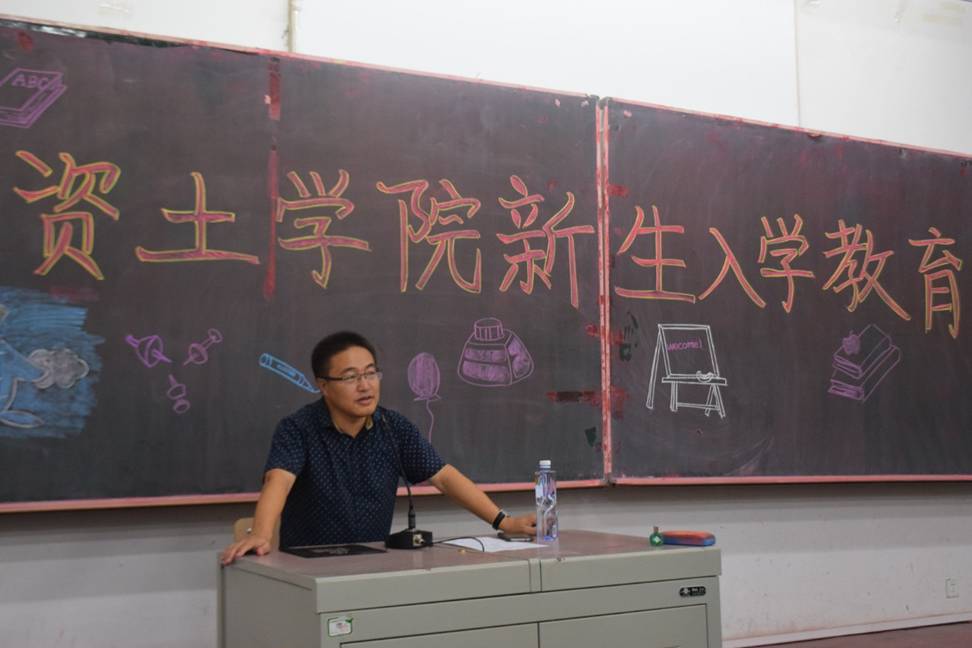 ABC
资土学院新生入学教育
Welcome!